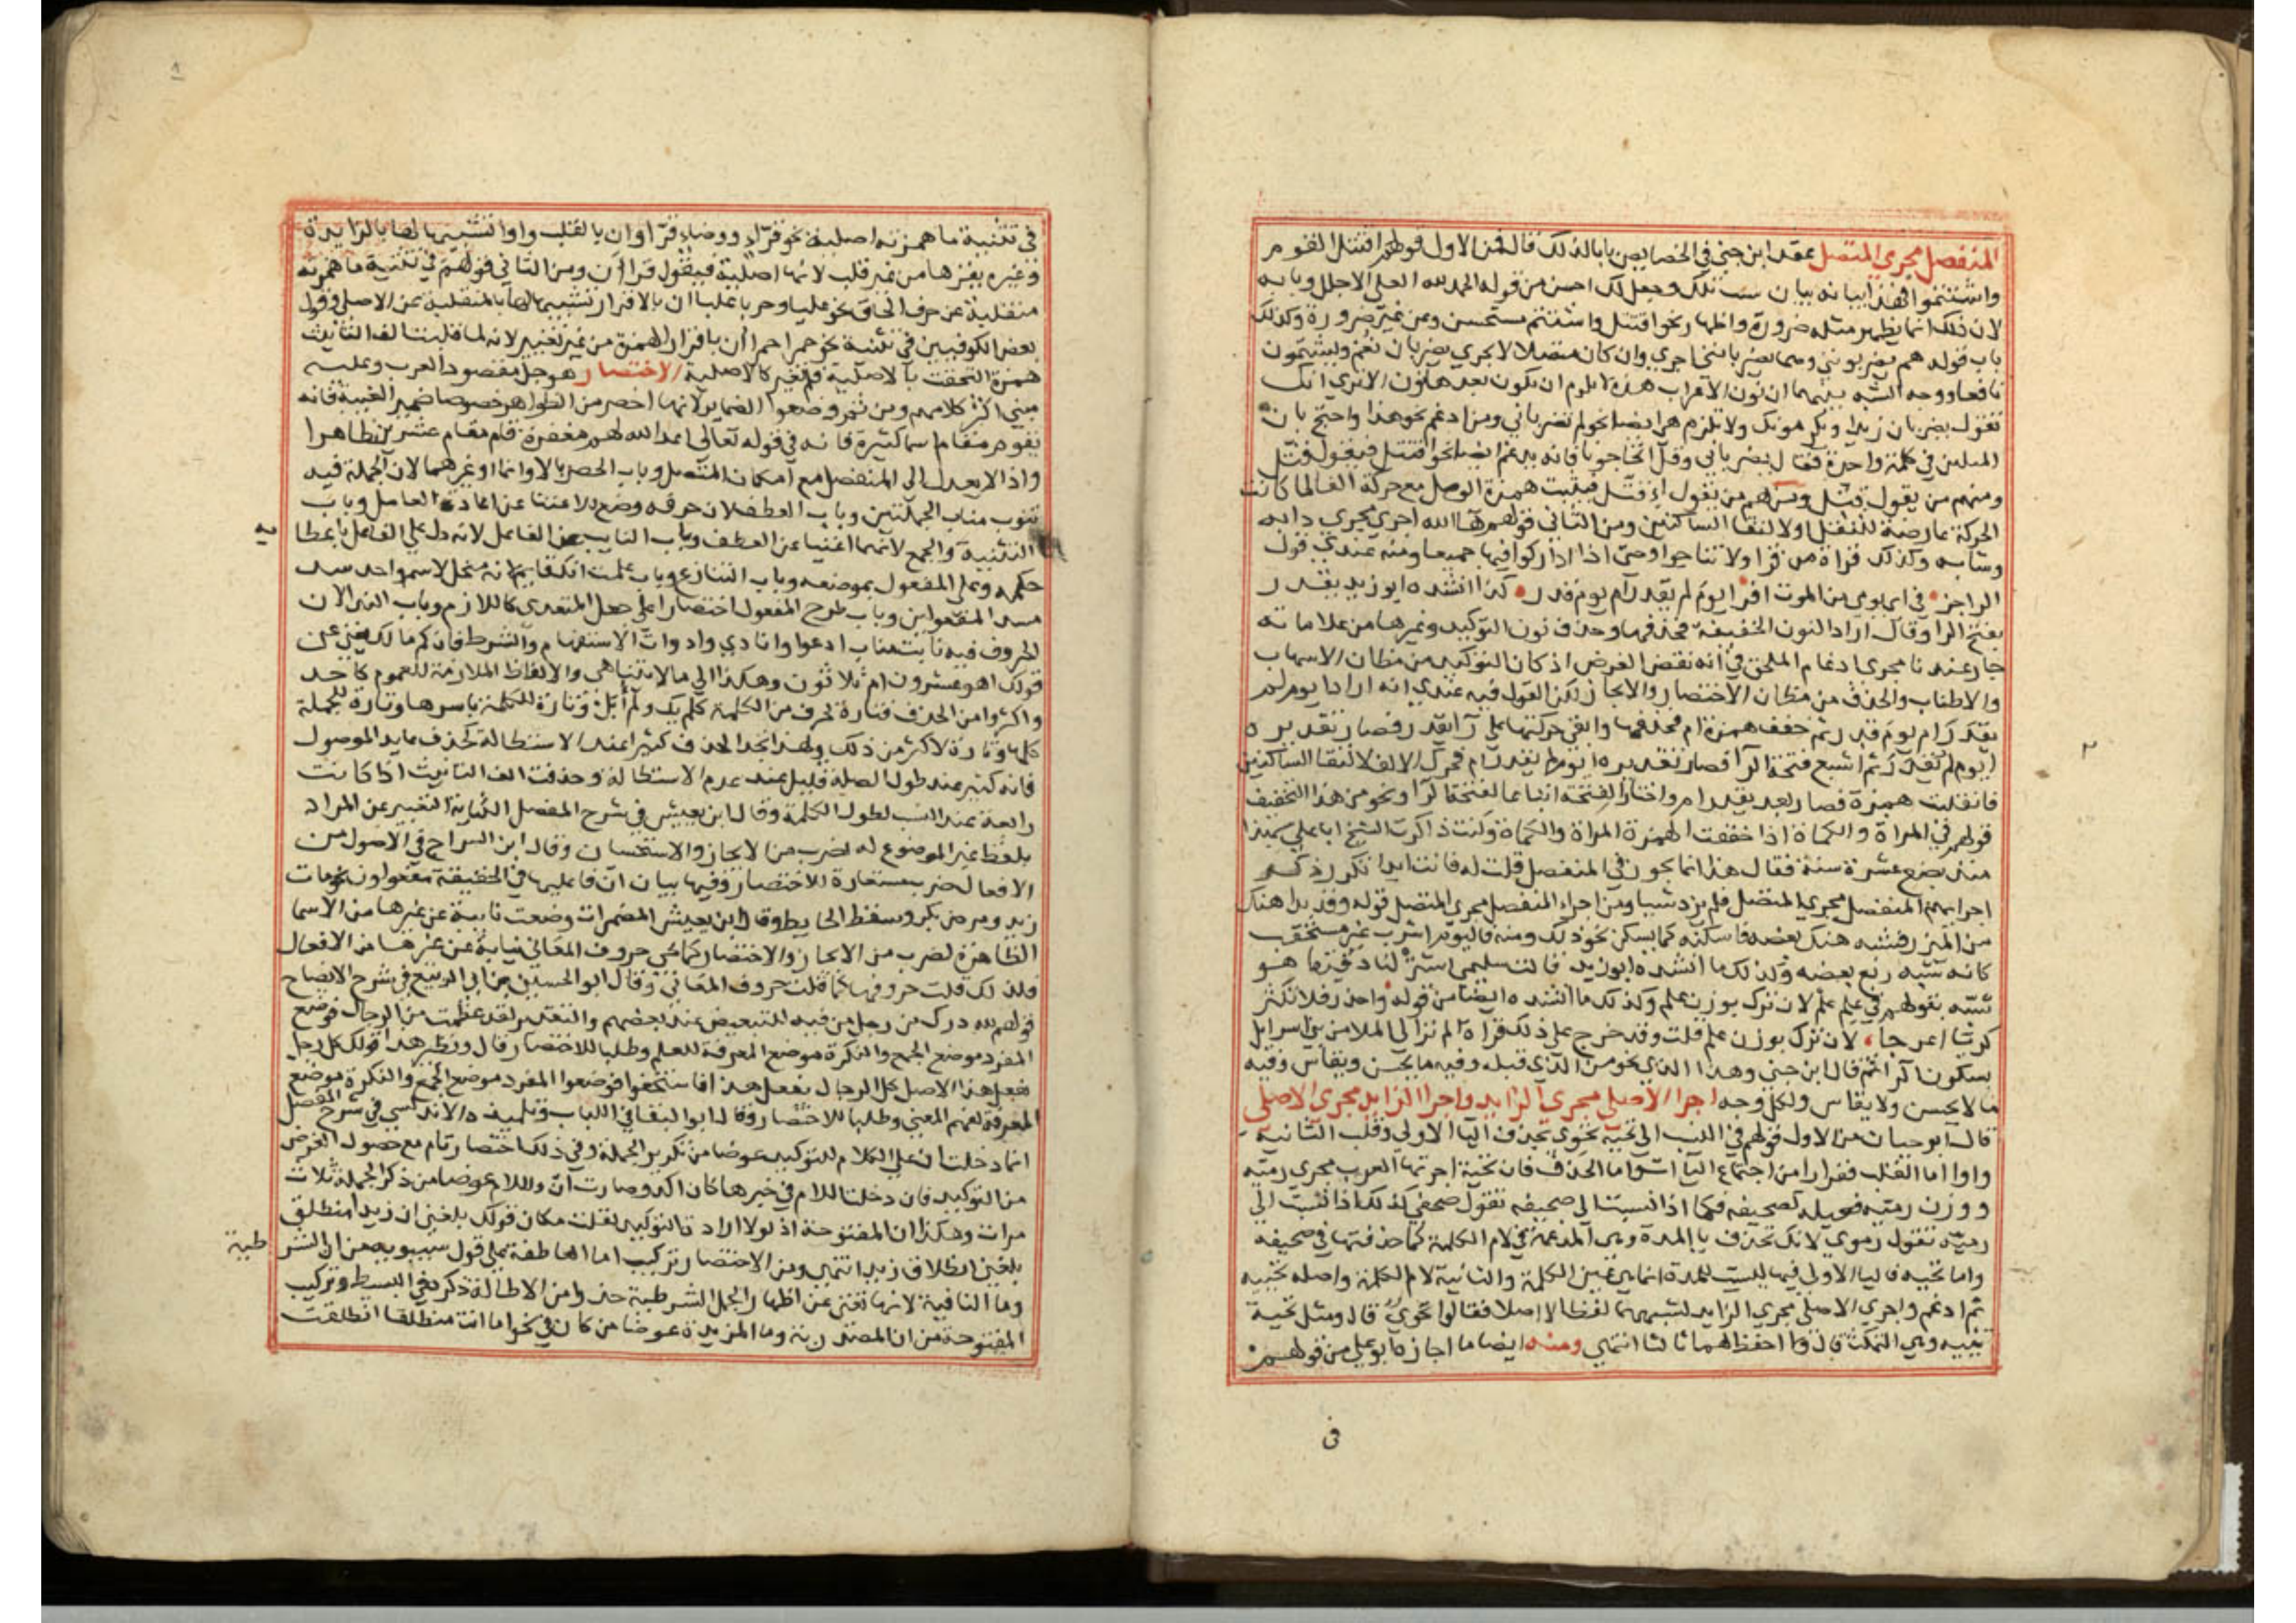 المنفصل مجرى المتصل عقد ابن جني في الخصايص بابا لذلك قال فمن الاول قولهم اقتتل القوم
واشتتموا فهذا بيانه بيان شئت تلك وجعل لك احسن من قوله الحمد لله العلي الاجلل وبابه
لان ذلك انما يظهر مثله ضرورة واظهار نحو اقتتل واشتتم مستحسن وعن غير ضرورة وكذلك
باب قوله هم يضربونني وهما يضربانني اجري وان كان متصلا لا يجري يضربان نعم ويشتمون
نافعا ووجه الشبه بينهما ان نون الاعراب هذه لا يلزم ان يكون بعدها نون الا تري انك
تقول يضربان زيدا ويكرمونك ولا تلزم هي ايضا نحو لم تضرباني ومن ادغم نحو هذا واحتج بان
المثلين في كلمة واحدة فقال يضرباني وقال اتحاجونا فانه يدغم ايضا نحو اقتتل فيقول قتل
ومنهم من يقول قتل ومنهم من يقول اقتل فيثبت همزة الوصل مع حركة القاف لما كانت
الحركة عارضة للنقل او لالتقا الساكنين ومن الثاني قولهم ها الله اجري مجري دابه
وشابه وكذلك قراة من قرا ولا تناجوا وحتى اذا اداركوا فيها جميعا ومنه عندي قول
الراجز في اي يومي من الموت افر ايوم لم يقدر ام يوم قدر كذا انشده ابو زيد يقدر
بفتح الرا وقال اراد النون الخفيفة فحذفها وحذف نون التوكيد وغيرها من علاماته
جار عندنا مجرى ادغام الملحق في انه نقض الغرض اذ كان التوكيد من مظان الاسهاب
والاطناب والحذف من مظان الاختصار والايجاز لكن القول فيه عندي انه اراد ايوم لم
يقدر ام يوم قدر ثم خفف همزة ام فحذفها والقى حركتها على را يقدر فصار تقديره
ايوم لم يقدر ثم اشبع فتحة الرا فصار تقديره ايوم لم يقدرام فحرك الالف لالتقا الساكنين
فانقلبت همزة فصار بعد يقدرام واختار الفتحة اتباعا لفتحة الرا ونحو من هذا التخفيف
قولهم في المراة والكماة اذا خففت الهمزة المراة والكماة وكنت ذاكرت الشيخ ابا علي بهذا
منذ بضع عشرة سنة فقال هذا انما يجوز في المنفصل قلت له فانت ابدا تكرر ذكر
اجرايهم المنفصل مجرى المتصل فلم يزد شيا ومن اجرا المنفصل مجرى المتصل قوله وقد بدا هنك
من الميزر فشبه هنك بعضد فاسكنه كما يسكن نحو ذلك ومنه فاليوم اشرب غير مستحقب
كانه شبه ربع بعضد وكذلك ما انشده ابو زيد قالت سليمى اشتر لنا دقيقا هو
شبه بقولهم في علم علم لان ترل بوزن علم وكذلك ما انشده ايضا من قوله واحذر فلا تكتر
كريا اعوجا لان ترك بوزن علم قلت وقد خرج على ذلك قراة الم تر الي الملا من بني اسرايل
بسكون الرا ثم قال ابن جني وهذا الذي نحو من الذي قبله وفيه ما يحسن ويقاس وفيه
ما لا يحسن ولا يقاس ولكل وجه اجرا الاصلي مجرى الزايد واجرا الزايد مجرى الاصلي
قال ابو حيان من الاول قولهم في النسب الي تحيه تحوي بحذف اليا الاولي وقلب الثانيه
واوا اما القلب ففرارا من اجتماع اليا ات واما الحذف فان تحية اجرتها العرب مجرى رمية
ووزن رمية فعيله كصحيفه فكما اذا نسبت الي صحيفه تقول صحفي كذلك اذا نسبت الي
رمية تقول رموي لانك تحذف يا المدة وهي المدغمة في لام الكلمة كما حذفتها في صحيفه
واما تحيه فاليا الاولي فيها ليست للمدة انما هي عين الكلمة والثانية لام الكلمة واصله تحييه
ثم ادغم واجري الاصلي مجرى الزايد لشبهها لفظا لا اصلا فقالوا تحوي قال ومثل تحية
تئيه وهي التمكث قال ولا احفظ لهما ثالثا انتهي ومنه ايضا ما اجازه ابو علي من قولهم
في
في تثنية ما همزته اصلية نحو قراء ووضاء قراوان بالقلب واوا تشبيها لها بالزايدة
وغيره يقرها من غير قلب لانها اصلية فيقول قرا ان ومن الثاني قولهم في تثنية ما همزته
منقلبة عن حرف الحاق نحو عليا وحربا علبا ان بالاقرار تشبيها لها بالمنقلبة عن الاصلي وقول
بعض الكوفيين في تثنية نحو حمرا حمرا ان باقرار الهمزة من غير تغيير لانه لما قلبت الف التانيث
همزة التحقت بالاصلية فلم تغير كالاصلية الاختصار هو جل مقصود العرب وعليه
مبني اكثر كلامهم ومن ثم وضعوا الضماير لانها اخصر من الظواهر خصوصا ضمير الغيبة فانه
يقوم مقام اسما كثيرة فانه في قوله تعالى اعد الله لهم مغفرة قام مقام عشرين ظاهرا
ولذا لا يعدل الى المنفصل مع امكان المتصل وباب الحصر بالا وانما او غيرهما لان الجملة فيه
تنوب مناب الجملتين وباب العطف لان حرفه وضع للاغنا عن اعادة العامل وباب
التثنية والجمع لانهما اغنيا عن العطف وباب النايب عن الفاعل لانه دل علي الفاعل باعطا
يه
حكمه وعلى المفعول بموضعه وباب التنازع وباب علمت انك قايم لانه منحل لاسم واحد سد
مسد المفعولين وباب طرح المفعول اختصارا علي جعل المتعدي كاللازم وباب الندا لان
الحروف فيه نابت مناب ادعو وانادي وادوات الاستفهام والشرط فان كم مالك يغني عن
قولك اهو عشرون ام ثلاثون وهكذا الي ما لا يتناهى والالفاظ الملازمة للعموم كاحد
واكثروا من الحذف فتارة لحرف من الكلمة كلم يك ولم ابل وتارة للكلمة باسرها وتارة للجملة
كلها وتارة لاكثر من ذلك ولهذا تجد الحذف كثيرا عند الاستطالة كحذف عايد الموصول
فانه كثير عند طول الصلة قليل عند عدم الاستطالة وحذفت الف التانيث اذا كانت
رابعة عند النسب لطول الكلمة وقال ابن يعيش في شرح المفصل الكناية التعبير عن المراد
بلفظ غير الموضوع له لضرب من الايجاز والاستحسان وقال ابن السراج في الاصول من
الافعال ضرب مستعارة للاختصار وفيها بيان ان فاعليها في الحقيقة مفعولون نحو مات
زيد ومرض بكر وسقط الحايط وقال ابن يعيش المضمرات وضعت نايبة عن غيرها من الاسما
الظاهرة لضرب من الايجاز والاختصار كما تجي حروف المعاني نيابة عن غيرها من الافعال
فلذلك قلت حروفها كما قلت حروف المعاني وقال ابو الحسين بن ابي الربيع في شرح الايضاح
قولهم لله درك من رجل من فيه للتبعيض عند بعضهم والتقدير لقد عظمت من الرجال فوضع
المفرد موضع الجمع والنكرة موضع المعرفة للعلم وطلبا للاختصار قال ونظير هذا قولك كل رجل
يفعل هذا الاصل كل الرجال يفعل هذا فاستخفوا فوضعوا المفرد موضع الجمع والنكرة موضع
المعرفة لفهم المعنى وطلبا للاختصار وقال ابو البقا في اللباب وتلميذه الاندلسي في شرح المفصل
انما دخلت ان علي الكلام للتوكيد عوضا من تكرير الجملة وفي ذلك اختصار تام مع حصول الغرض
من التوكيد فان دخلت اللام في خبرها كان اكد وصارت ان واللام عوضا من ذكر الجملة ثلاث
مرات وهكذا ان المفتوحة اذ لولا ارادة التوكيد لقلت مكان قولك بلغني ان زيدا منطلق
بلغني انطلاق زيد انتهي ومن الاختصار تركيب اما العاطفة على قول سيبويه من ان الشر
طية
وما النافية لانها تغني عن اظهار الجمل الشرطية حذرا من الاطالة ذكره في البسيط وتركيب
المفتوحة من ان المصدرية وما المزيدة عوضا من كان في نحو اما انت منطلقا انطلقت